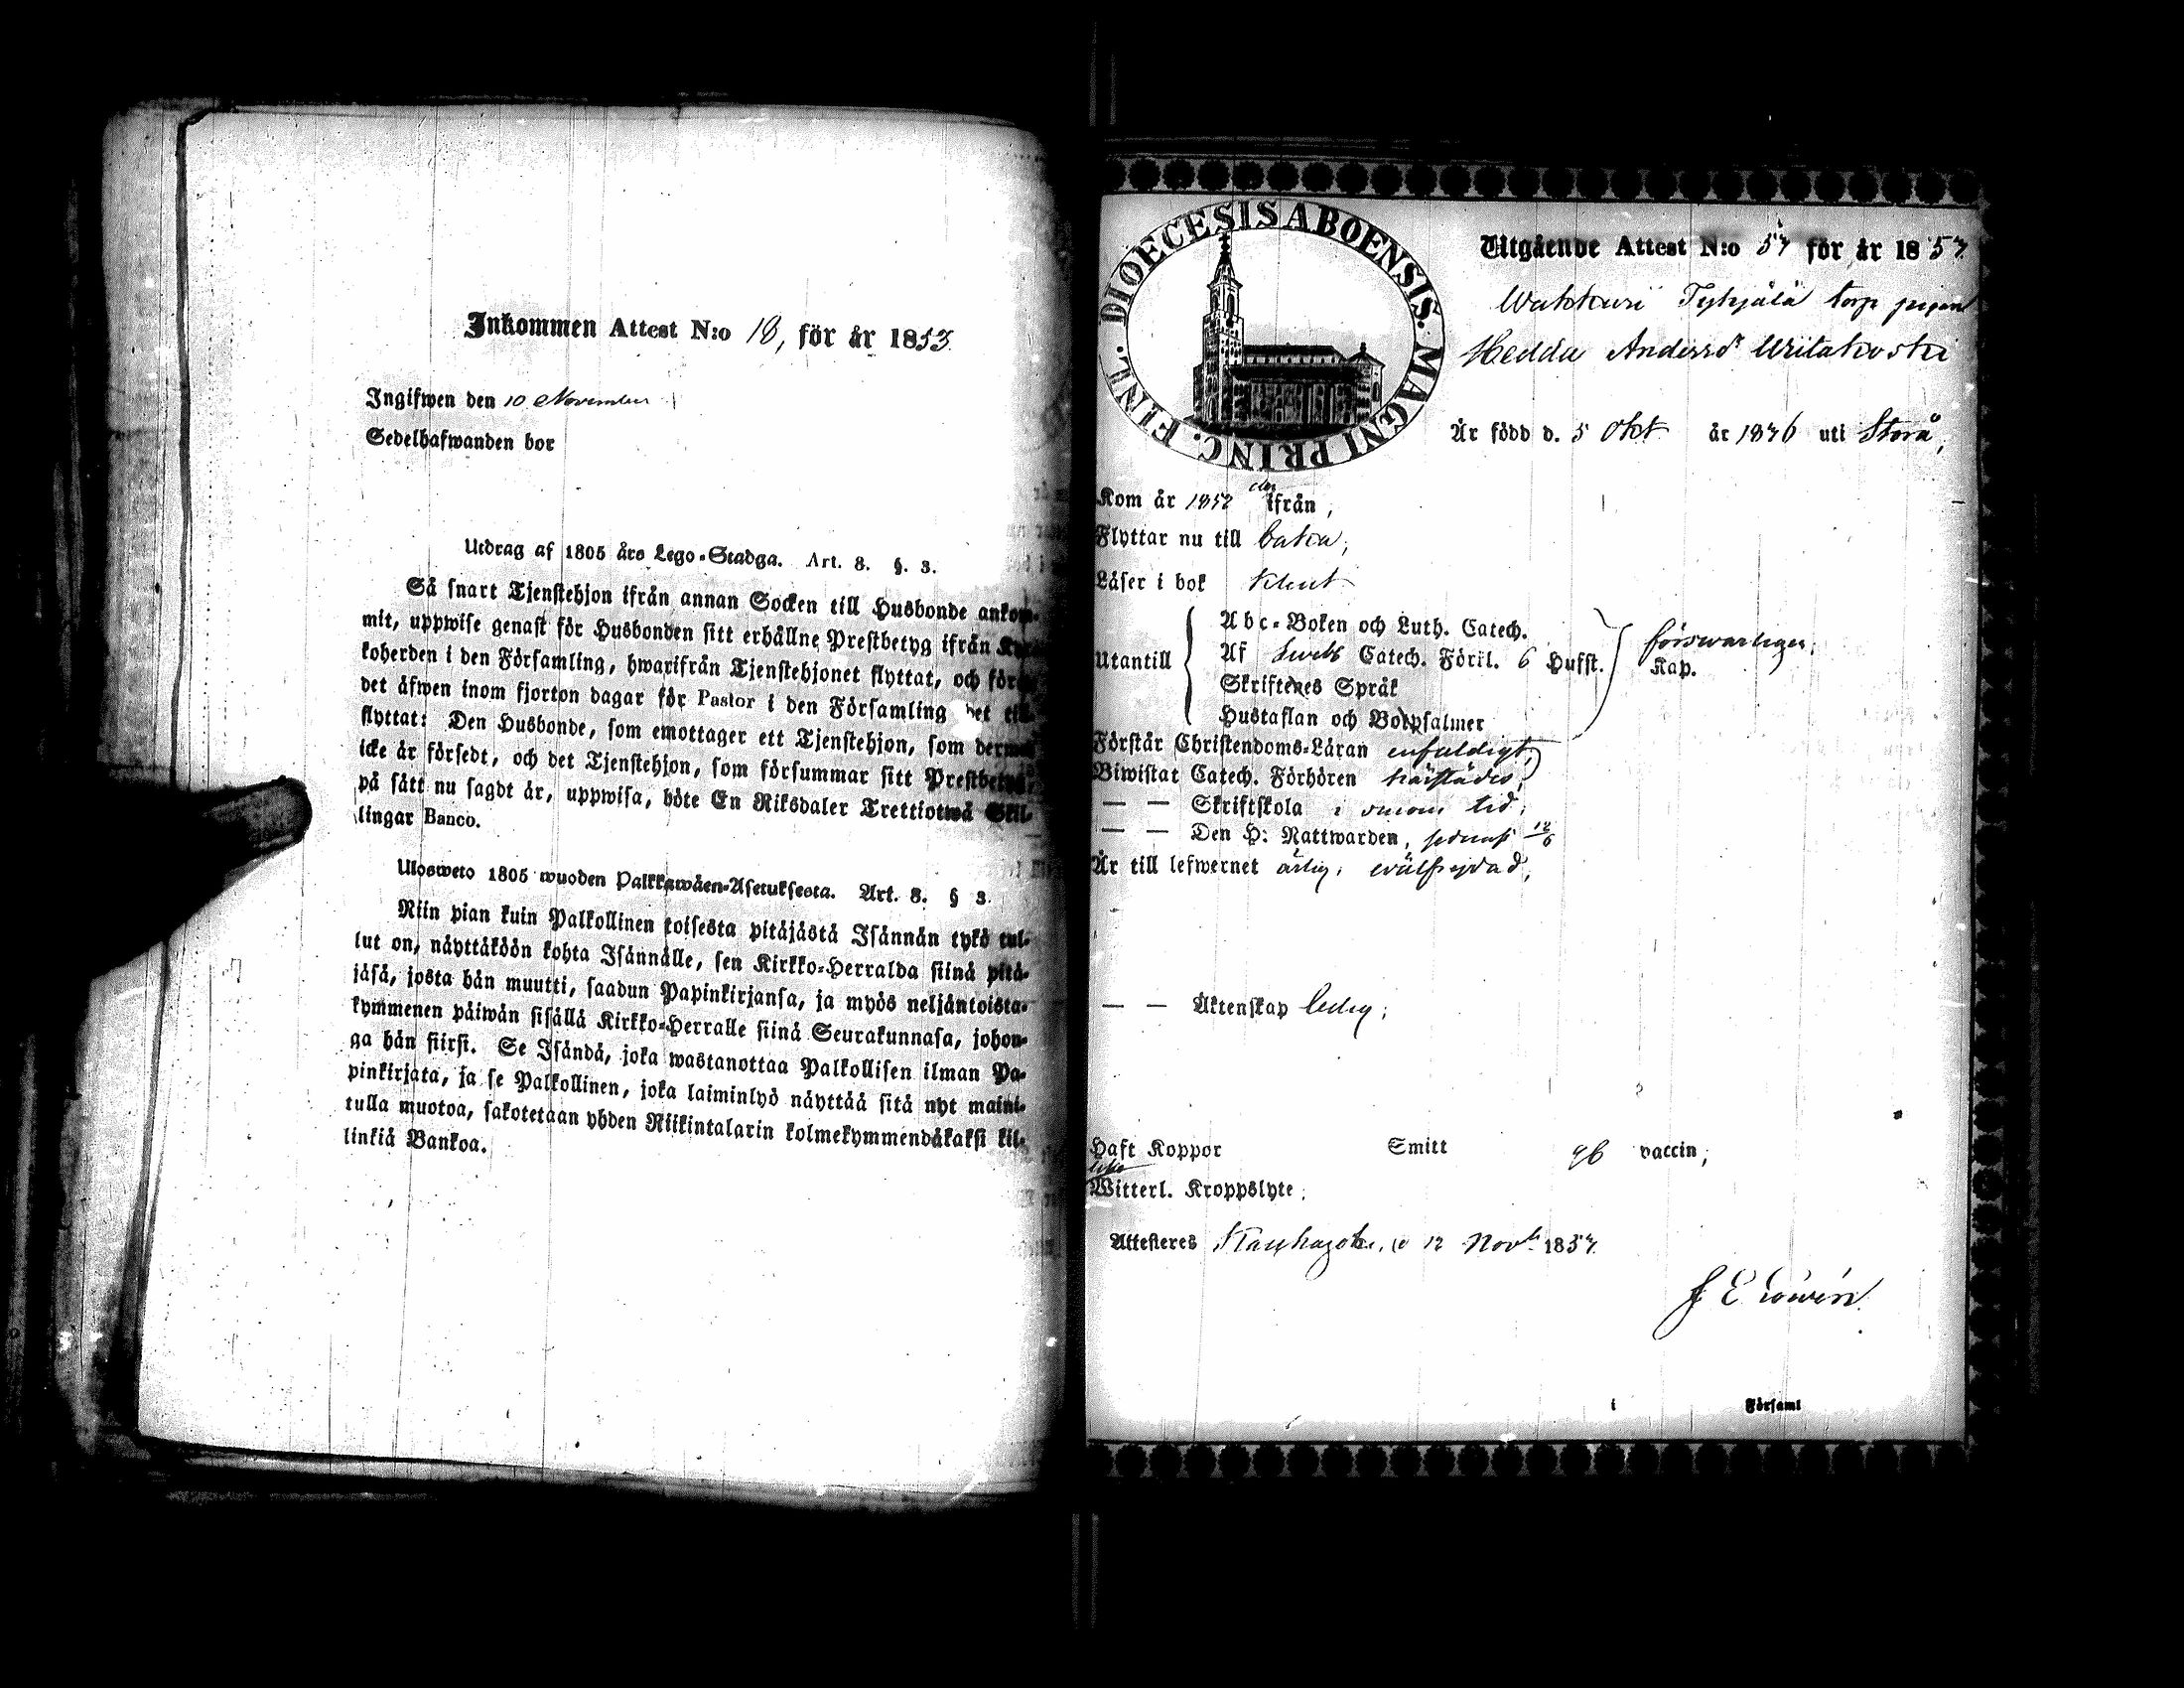 Inkommen Attest N:o 18, för år 1853
Ingifwen den 10 November
Sedelhafwanden bor
Utdrag af 1805 års Lego-Stadga. Art. 8. §. 3.
Så snart Tjenstehjon ifrån annan Socken till Husbonde ankom-
mit, uppwise genast för Husbonden sitt erhållne Prestbetyg ifrån
koherden i den Församling, hwarifrån Tjenstehjonet flyttat, och före
det åfwen inom fjorton dagar för Pastor i den Församling det till
flyttat: Den Husbonde, som emottager ett Tjenstehjon, som dermed
icke är försedt, och det Tjenstehjon, som försummar sitt Prestbetyg
på sätt nu sagdt är, uppwisa, böte En Riksdaler Trettiotwå Skil-
lingar Banco.
Ulosweto 1805 wuoden Palkkawäen-Asetuksesta. Art. 8. § 3.
Niin pian kuin Palkollinen toisesta pitäjästä Isännän tykö tul-
lut on, näyttäköön kohta Isännälle, sen Kirkko-Herralda siinä pitä-
jäsä, josta hän muutti, saadun Papinkirjansa, ja myös neljäntoista-
kymmenen päiwän sisällä Kirkko-Herralle siinä Seurakunnasa, johon-
ga hän siirsi. Se Isändä, joka wastanottaa Palkollisen ilman Pa-
pinkirjata, ja se Palkollinen, joka laiminlyö näyttää sitä nyt maini-
tulla muotoa, sakotetaan yhden Riikintalarin kolmekymmendäkaksi kil-
linkiä Bankoa.
DIOECESIS ABOENSIS. MAGNI PRINC. FINL.
Utgående Attest N:o 57 för år 1857
torp pigan
Hedda Andersd
Är född d. 5 Okt år 1836 uti Storå,
Kom år 1852 ifrån,
Flyttar nu till
Läser i bok
Utantill
Abc-Boken och Luth. Catech.
Af Catech. Förkl. 6 Hufst.
försvarligen;
Kap.
Skriftenes Språk
Hustaflan och Botpsalmer
Förstår Christendoms-Läran enfaldigt;
Biwistat Catech. Förhören härstädes;
— — Skriftskola i sinom tid;
— — Den H: Nattwarden, senast
Är till lefwernet ärlig; wälfrejdad;
— — Äktenskap ledig;
Haft Koppor Smitt vaccin;
Witterl. Kroppslyte;
Attesteres d 12 Nov. 1857
i Församl